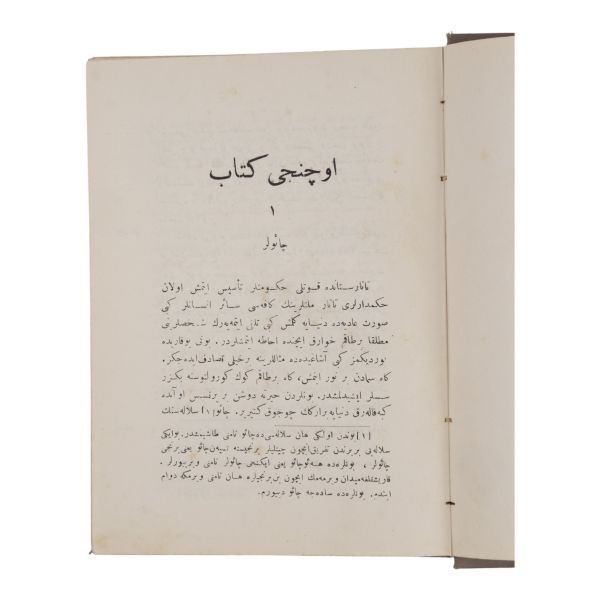 اوچنجی كتاب
١
چائولر
تاتارستانده قوتلی حكومتلر تأسیس ایتمش اولان
حكمدارلری تاتار ملتلرینك كافه‌سی سائر انسانلر كبی
صورت عادیه‌ده دنیایه كلمش كبی تلقی ایتمه‌یه‌رك شخصلرینی
مطلقا برطاقم خوارق ایچنده احاطه ایتمشلردر. بونی یوقاریده
كوردیكمز كبی آشاغیده‌ده مثاللرینه برخیلی تصادف ایده‌جكز.
كاه سمادن بر نور ایتمش، كاه برطاقم كوك كورولتوسنه بكزر
سسلر ایشیدلمشدر. بونلردن حیرته دوشن بر پرنسس او آنده
كبه قاله‌رق دنیایه برارككْ چوجوق كتیریر. چائو[١] سلاله‌سنك
[١] بوندن اولكی هان سلاله‌سی‌ده چائو نامنی طاشیمشدر. بوایكی
سلاله‌یی بربرندن تفریق ایچون چینلیلر برنجیسنه تسیه‌ن چائو یعنی برنجی
چائولر، بونلره‌ده هئه‌ئوچائو یعنی ایكنجی چائولر نامنی ویرییورلر.
قاریشقلغه میدان ویرمه‌مك ایچون بن برنجیلره هان نامنی ویرمكده دوام
ایتدم. بونلره‌ده ساده‌جه چائو دییورم.